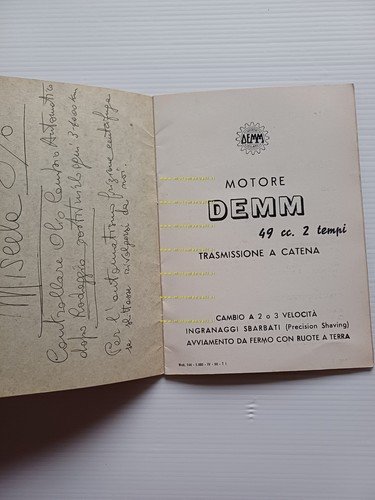 Miscela %
Controllare Olio Cambio Automatico
dopo Rodaggio sostituirlo ogni 3000 km
Per l'automatismo frizione centrifuga
si
da noi.
DEMM
MOTORE
DEMM
49 cc. 2 tempi
TRASMISSIONE A CATENA
CAMBIO A 2 o 3 VELOCITÀ
INGRANAGGI SBARBATI (Precision Shaving)
AVVIAMENTO DA FERMO CON RUOTE A TERRA